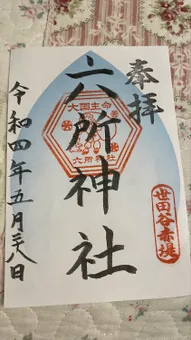 奉拝
六所神社
大国主命
六所神社
世田谷赤堤
令和四年五月二八日